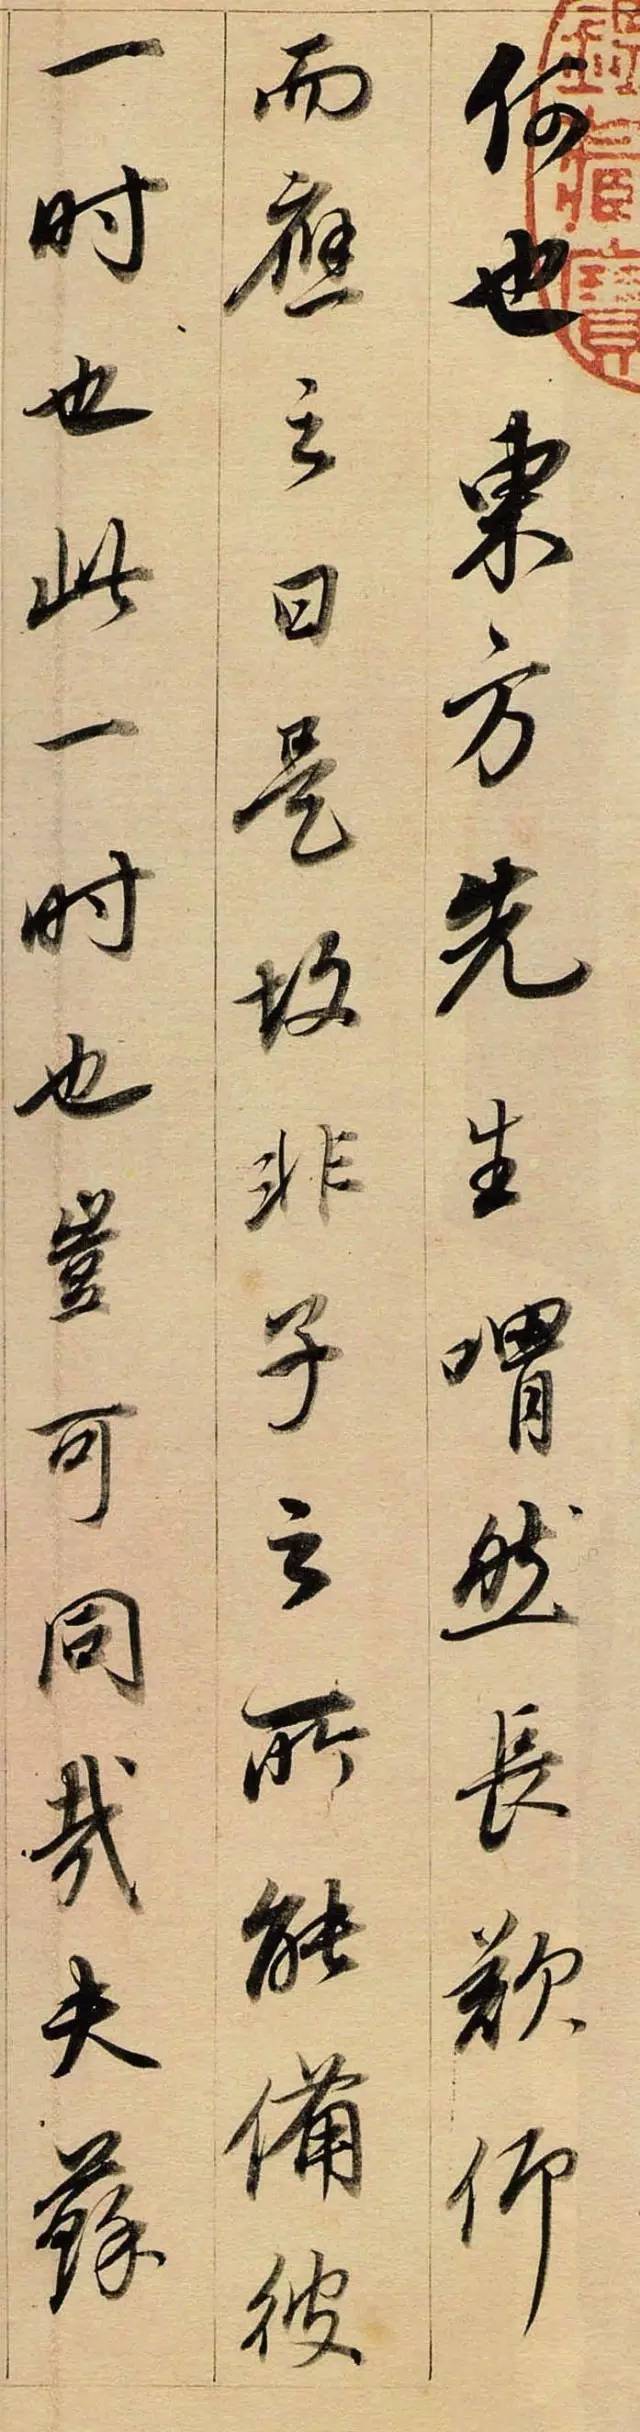 鑑藏寶
何也東方先生喟然長歎仰
而應之曰是故非子之所能備彼
一时也此一时也豈可同哉夫蘇